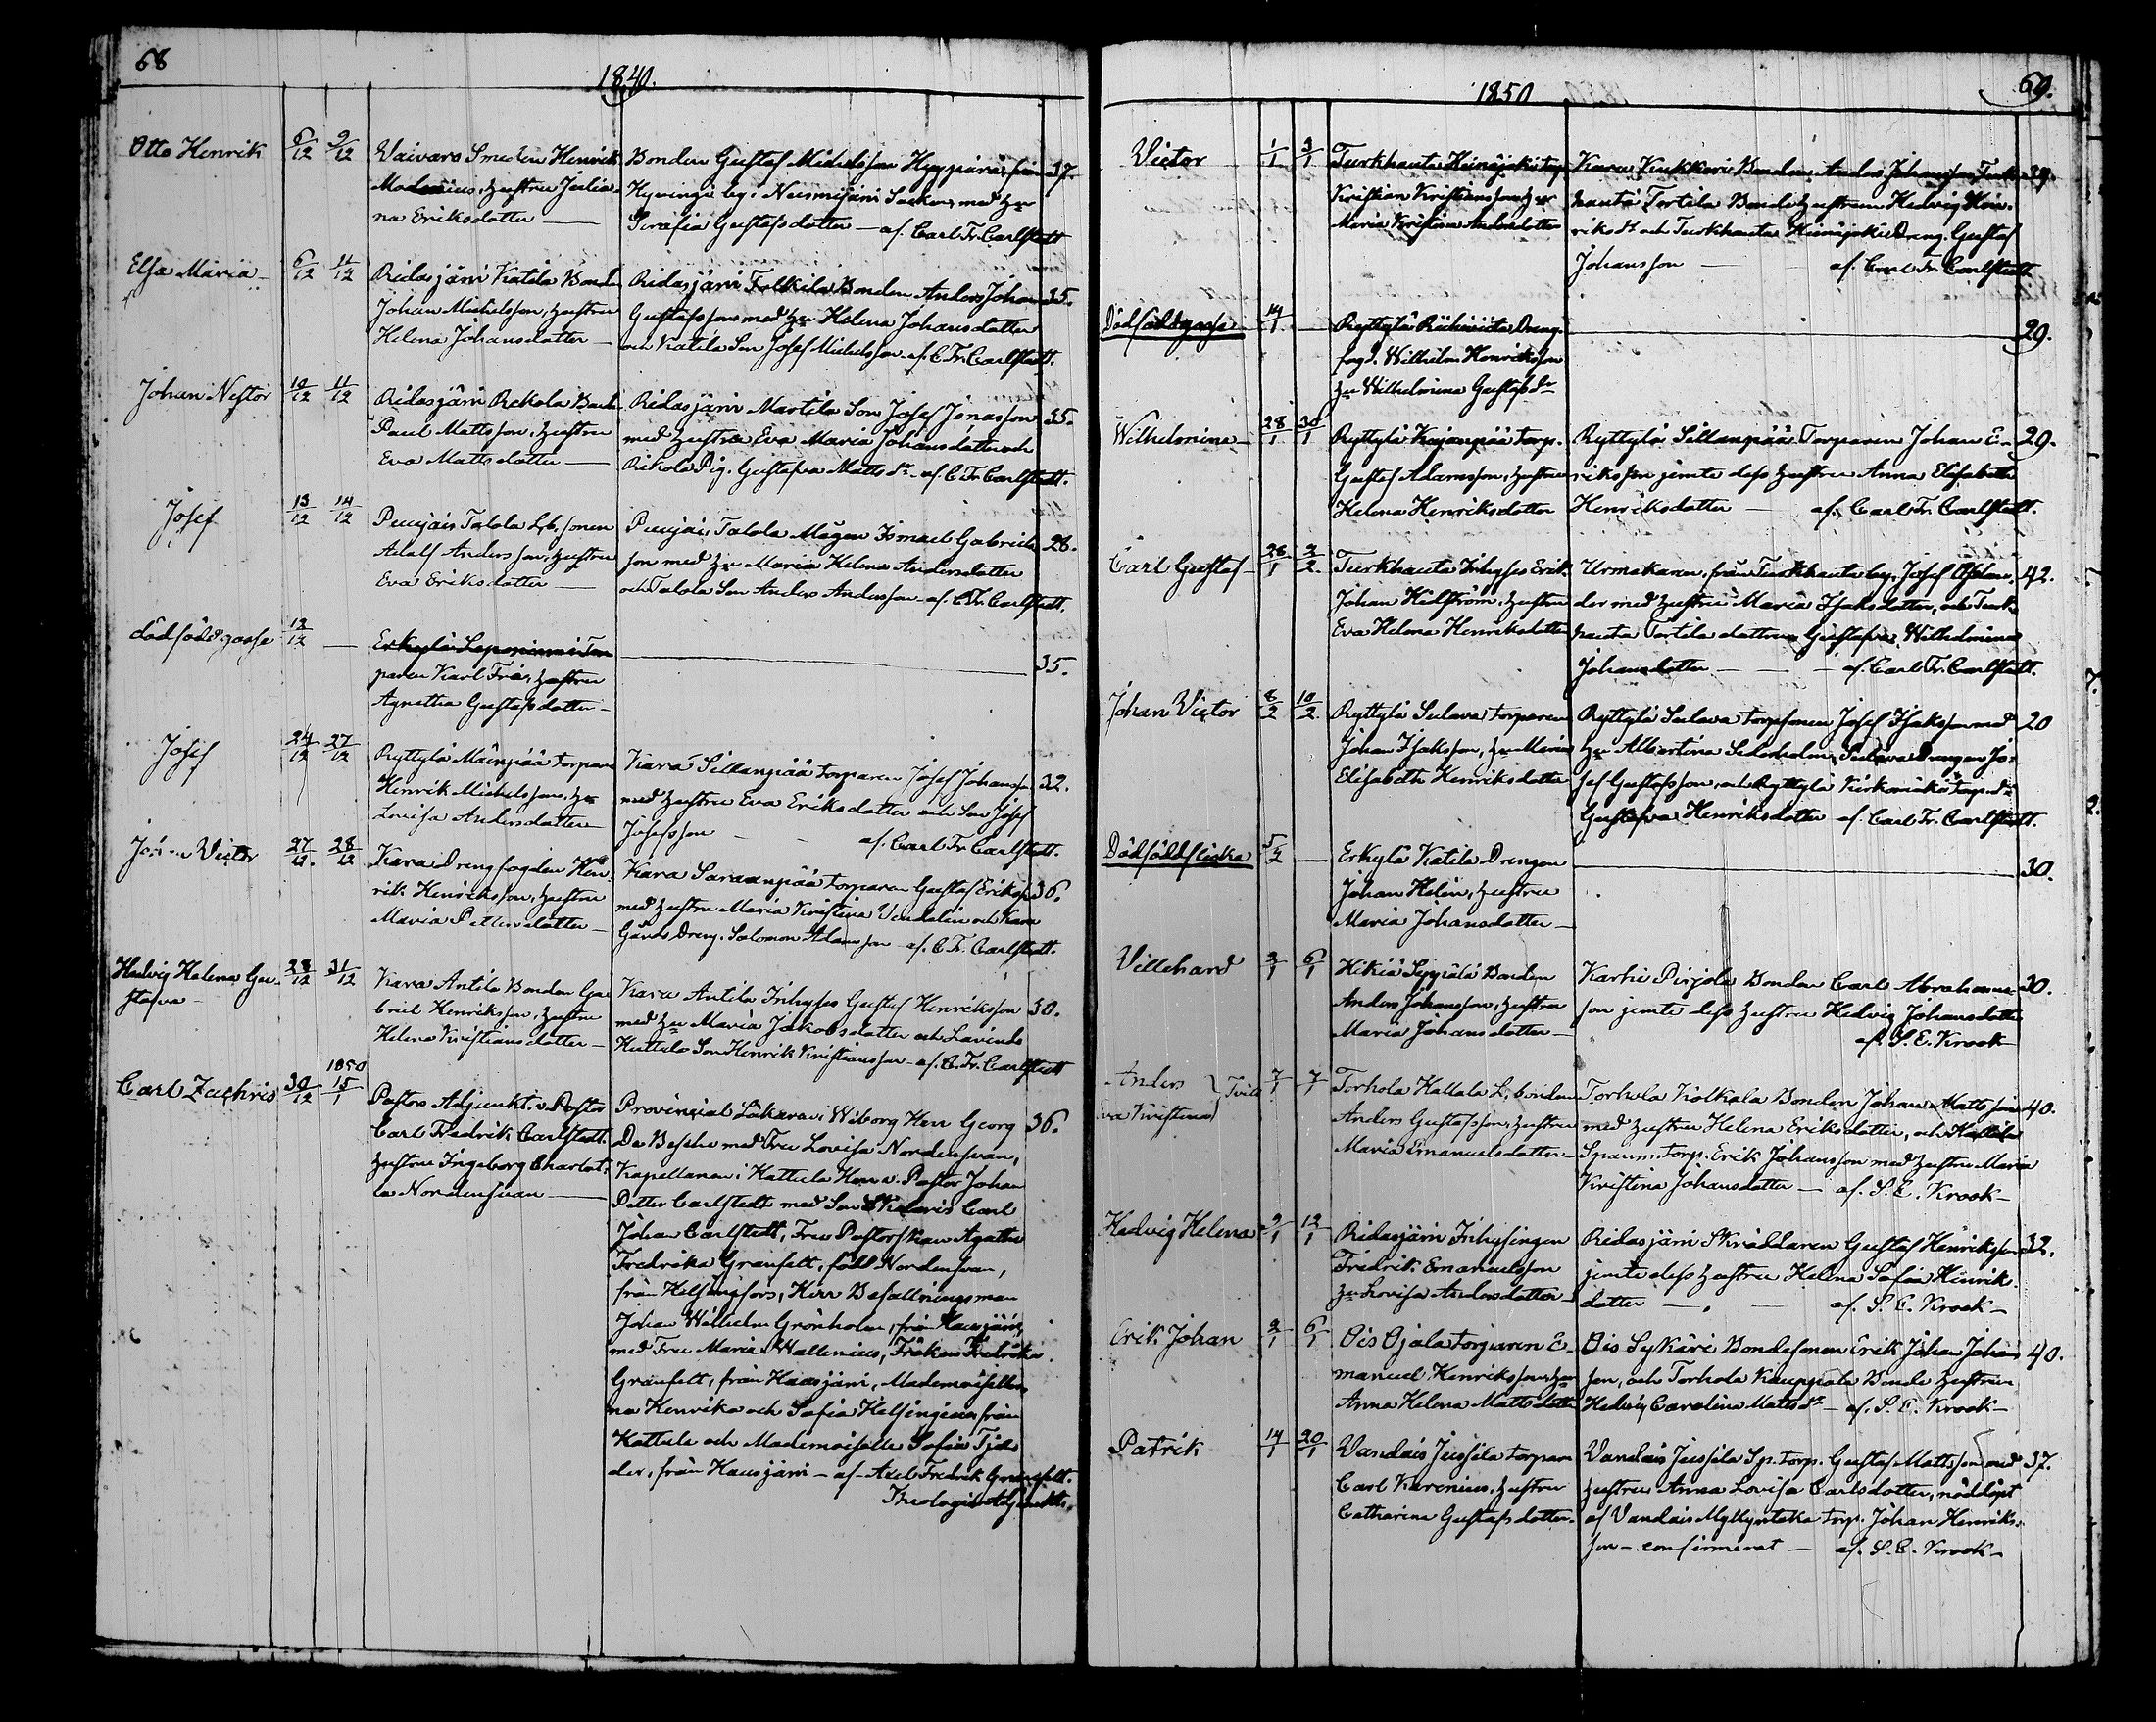 68
1849.
Otto Henrik 6/12 9/12 Waivaro Smeden Henrik Bonden Gustaf Michelsson Hyppärä, från 37.
Modenius, hustru Julia- Hyvinge by i Nurmijärvi Socken, med hu
na Eriksdotter — Serafia Gustafsdotter — af. Carl Fr. Carlstedt
Elsa Maria 6/12 11/12 Ridasjärvi Katila Bonde Ridasjärvi Folkila Bonden Anders Johan 35.
Johan Michelsson, hustru Gustafsson med hu Helena Johansdotter
Helena Johansdotter — och Katila Son Josef Michelsson af. C Fr. Carlstedt.
Johan Nestor 10/12 11/12 Ridasjärvi Rekola Bonde Ridasjärvi Martila Son Josef Jonasson 35.
Paul Mattsson, hustru med hustru Eva Maria Johansdotter och
Eva Mattsdotter — Rikola Pig. Gustafva Mattsdr. af. C Fr. Carlstedt.
Josef 13/12 14/12 Puujais Talola Lb. sonen Puujais, Talola Mågen Ismael Gabriels 28.
Adolf Andersson, hustru son med hu Maria Helena Andersdotter
Eva Eriksdotter — och Talola Son Anders Andersson af. C Fr. Carlstedt.
dödfödd gosse 12/12 — Erkylä Leponiemi Tor 35.
paren Karl Fri, hustru
Agnetha Gustafsdotter —
Josef 24/12 27/12 Ryttylä Mäenpää torpare Kara Sillanpää torparen Josef Johansson 32.
Henrik Michelsson, hu med hustru Eva Eriksdotter och Son Josef
Lovisa Andersdotter — Josefsson — af. Carl Fr. Carlstedt.
Johan Victor 27/12 28/12 Kara Drengfogden Hen- Kara Saraanpää torparen Gustaf Eriksson 36.
rik Henriksson, hustru med hustru Maria Kristina Vendelin och Kara
Maria Pettersdotter — Gårds Dreng. Salomon Adamsson af. C Fr. Carlstedt.
Hedvig Helena Gu- 28/12 31/12 Kara Antila Bonden Ga- Kara Antila Inhyses Gustaf Henriksson 30.
stafva briel Henriksson, hustru med hu Maria Jakobsdotter och Lavinds
Helena Kristiansdotter — Huttula Son Henrik Kristiansson af. C. Fr. Carlstedt
1850
Carl Zachris 30/12 15/1 Pastors Adjunkt. v. Pastor Provincial Läkaren i Wiborg Herr Georg 36.
Carl Fredrik Carlstedt. De Besche med Fru Lovisa Nordensvan,
hustru Ingeborg Charlot- Kapellanen i Hattula Herr v. Pastor Johan
ta Nordensvan — Petter Carlstedt med Son Klaris Carl
Johan Carlstedt, Fru Pastorskan Agatha
Fredrika Granfelt, född Nordensvan,
från Helsingfors, Herr Befallningsman
Johan Wilhelm Grönholm, från Hausjärvi,
med Fru Maria Wallenius, Fröken Fredrika
Granfelt, från Hausjärvi, Mademoiseller
na Henrika och Sofia Helsingius från
Hattula och Mademoiselle Sofia Tjäder
der, från Hausjärvi — af Axel Fredrik Granfelt.
Theologie Adjunkt.
69.
1850
Victor 1/1 3/1 Turkhauta Heinäjoki torp Kara Kukkari Bonden Anders Johansson Turk- 39.
Kristian Kristiansson, hur hauta Tortila Bonde hustrun Hedvig Hen-
Maria Kristina Andersdotter riksdr och Turkhauta Heinäjoki Dreng. Gustaf
Johansson — af. Carl Fr. Carlstedt
Dödfödd gosse 14/1 — Ryttylä Riihiviita Dreng- 29.
fogd. Wilhelm Henriksson
hu Wilhelmina Gustafsdr
Wilhelmina 28/1 30/1 Ryttylä Kajanpää torp. Ryttylä Sillanpää Torparen Johan E- 29.
Gustaf Adamsson, hustru riksson jemte dess hustru Anna Elisabeth
Helena Henriksdotter Henriksdotter — af. Carl Fr. Carlstedt.
Carl Gustaf 28/1 2/2 Turkhauta Inhyses Erik Urmakaren, från Turkhauta by, Josef 42.
Johan Hilström, hustru der med hustru Maria Isaksdotter, och Turk-
Eva Helena Henriksdotter hauta Tortila dottren Gustafva Wilhelmina
Johansdotter — af. Carl Fr. Carlstedt.
Johan Victor 8/2 10/2 Ryttylä Sulava torparen Ryttylä Sulava torpsonen Josef Isaksson med 20
Johan Isaksson, hu Maria hu Albertina Söderholm, Sulava Drengen Jo-
Elisabeth Henriksdotter sef Gustafsson, och Ryttylä Kirkomäki torp. dr
Gustafva Henriksdotter af. Carl Fr. Carlstedt.
Dödfödd flicka 5/2 — Erkylä Katila Drengen 30.
Johan Helin, hustru
Maria Johansdotter —
Villehard 3/1 6/1 Hikiä Seppälä Bonden Karhi Pirjola Bonden Carl Abrahams- 30.
Anders Johansson, hustru son jemte dess hustru Hedvig Johansdotter
Maria Johansdotter — af. S. E. Krook
Anders } Tvill 7/1 7/1 Torhola Hallala L. bonden Torhola Kolkala Bonden Johan Mattsson 40.
Eva Kristina Anders Gustafsson, hustru med hustru Helena Eriksdotter, och Hallala
Maria Emanuelsdotter Spanm. torp. Erik Johansson med hustru Maria
Kristina Johansdotter — af. S. E. Krook —
Hedvig Helena 9/1 12/1 Ridasjärvi Inhysingen Ridasjärvi Skräddaren Gustaf Henriksson 32.
Fredrik Emanuelsson jemte dess hustru Helena Sofia Henriks
hu Lovisa Andersdotter dotter — af. S. E. Krook —
Erik Johan 2/1 6/1 Ois Ojala torparen E- Ois Sykäri Bondesonen Erik Johan Johans 40.
manuel Henriksson, hu son, och Torhola Kauppala Bonde hustrun
Anna Helena Mattsdotter Hedvig Carolina Mattsdr — af. S. E. Krook —
Patrik 14/1 20/1 Vandais Jussila torparen Vandais Jussila Sp. torp. Gustaf Mattsson med 37.
Carl Karenius, hustru hustru Anna Lovisa Carlsdotter, nöddöpt
Catharina Gustafsdotter. af Vandais Myllyntaka torp. Johan Henriks-
son — confirmerat — af. S. E. Krook —